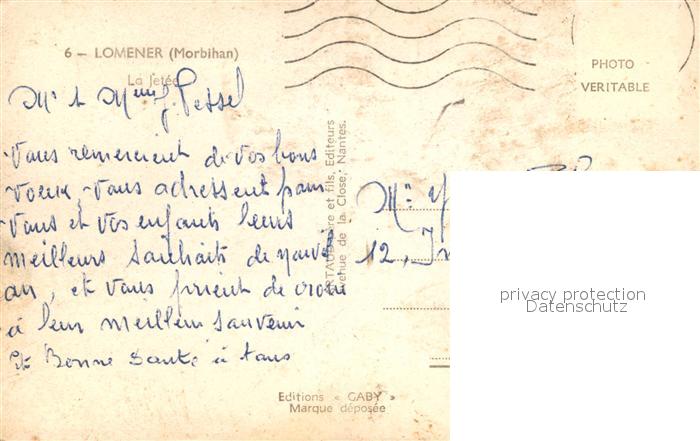 6 - LOMENER (Morbihan)
La Jetée
PHOTO
VERITABLE
Mr & Mme J. Tessel
Vous remercient de vos bons
voeux, vous adressent pour
vous et vos enfants leurs
meilleurs souhaits de nouvel
an, et vous prient de croire
à leur meilleur souvenir
et Bonne Santé à tous
et fils, Editeurs
avenue de la Close, Nantes.
Mr
12,
Editions « GABY »
Marque déposée
privacy protection
Datenschutz